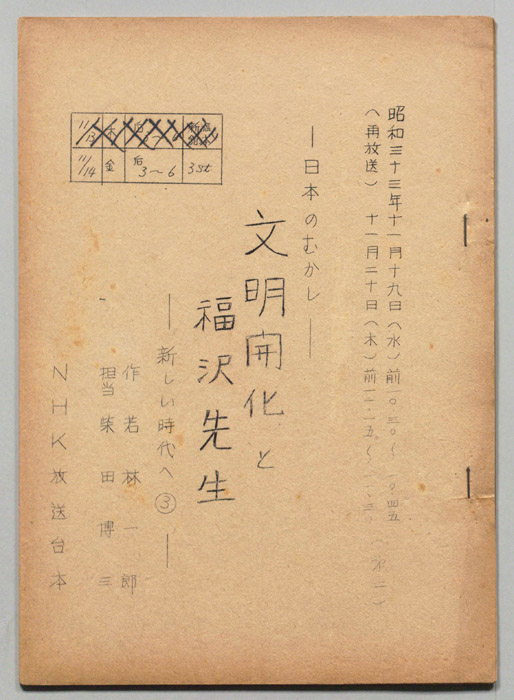 昭和三十三年十一月十九日(水)前一〇・三〇〜一〇・四五
(再放送) 十一月二十日(木)前
―日本のむかし―
文明開化と
福沢先生
―新しい時代へ③―
作 若林一郎
担当 柴田博三
NHK放送台本
11/13 木 后
11/14 金 后3〜6 3st